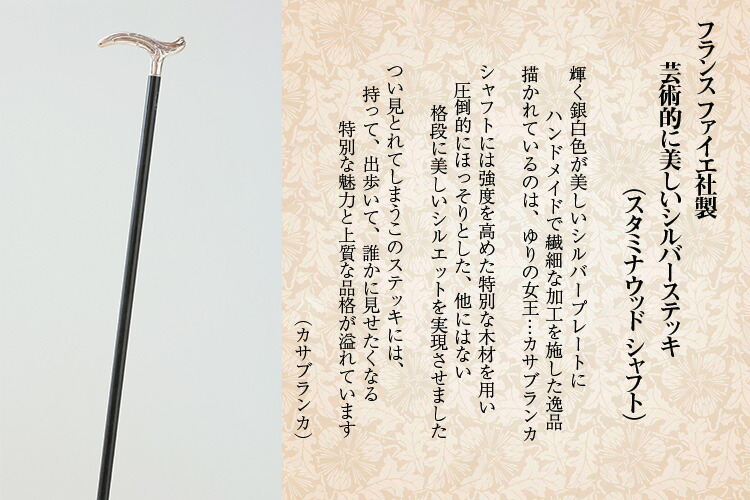 フランス ファイエ社製
芸術的に美しいシルバーステッキ
(スタミナウッド シャフト)
輝く銀白色が美しいシルバープレートに
ハンドメイドで繊細な加工を施した逸品
描かれているのは、ゆりの女王…カサブランカ
シャフトには強度を高めた特別な木材を用い
圧倒的にほっそりとした、他にはない
格段に美しいシルエットを実現させました
つい見とれてしまうこのステッキには、
持って、出歩いて、誰かに見せたくなる
特別な魅力と上質な品格が溢れています
(カサブランカ)